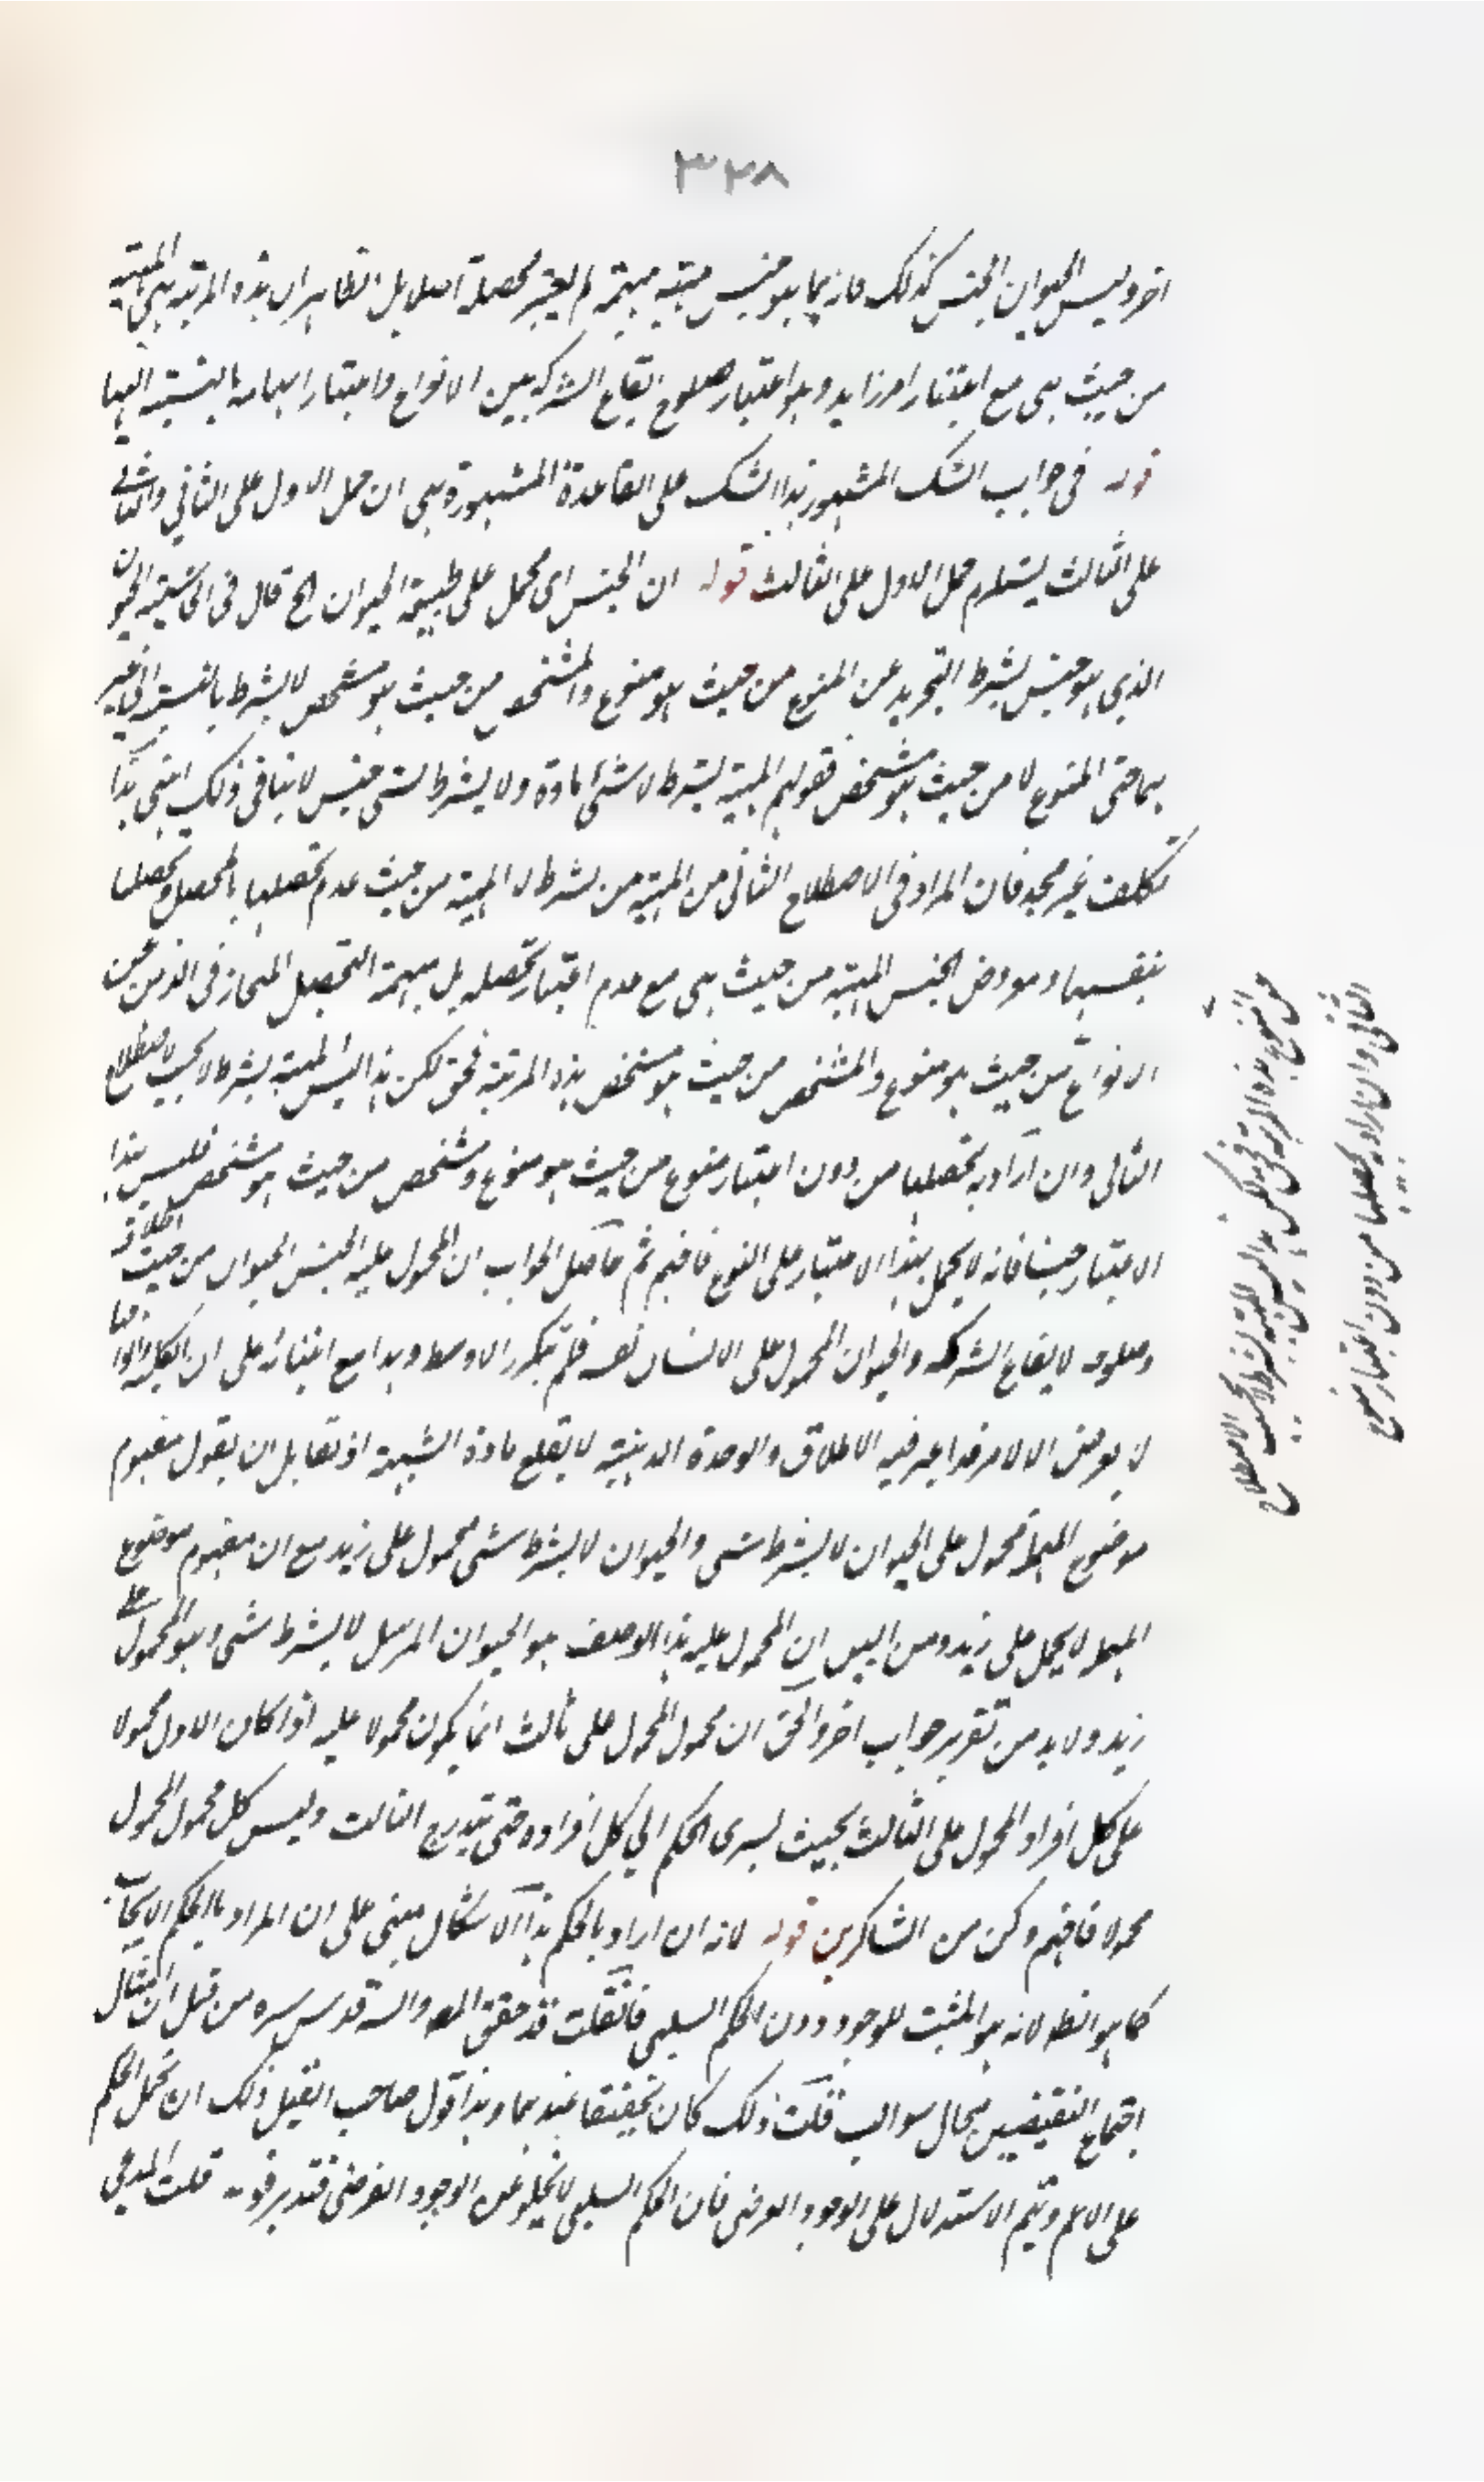 ٣٢٨
اخر وليس الحيوان الجنس كذلك فانه بما هو جنس مهية مبهمة لم يعتبر محصلة اصلا بل الظاهر ان هذه المرتبة هى المهية
من حيث هى مع اعتبار امر زايد وهو اعتبار صلوح ايقاع الشركة بين الانواع واعتبار ابهامه بالنسبة اليها
قوله فى جواب الشك المشهور هذا الشك على القاعدة المشهورة هى ان حمل الاول على الثانى والثانى
على الثالث يستلزم حمل الاول على الثالث قوله ان الجنس اى يحمل على طبيعة الحيوان الخ قال فى الحاشية الحيوان
الذى هو جنس بشرط التجريد عن المنوع من حيث هو منوع والمشخص من حيث هو مشخص لا بشرط بالنسبة الى غير
هما حتى المنوع لا من حيث هو مشخص فقولهم المهية بشرط لا شئ مادة ولا بشرط شئ جنس لا ينافى ذلك انتهى هذا
تكلف غير مجد فان المراد فى الاصطلاح الثانى من المهية من بشرط لا المهية من حيث عدم تحصلها بالمحصل وتحصلها
بنفسها ومعروض الجنس المهية من حيث هى مع عدم اعتبار تحصله بل مبهمة التحصل المنحاز فى الذهن عن
الانواع من حيث هو منوع والمشخص من حيث هو مشخص هذه المرتبة فحق لكن هذا ليس المهية بشرط لا بحسب الاصطلاح
الثانى وان اراد به تحصلها من دون اعتبار منوع من حيث هو منوع ومشخص من حيث هو مشخص فليس هذا
الاعتبار جنسا فانه لا يحمل بهذا الاعتبار على النوع فافهم ثم حاصل الجواب ان المحمول عليه الجنس الحيوان من حيث اطلاقه
وصلوحه لايقاع الشركة والحيوان المحمول على الانسان نفسه فلم يتكرر الاوسط وهذا مع ابتنائه على ان الكلية وانواعها
لا يعرض الا لامر قد اعتبر فيه الاطلاق والوحدة الذهنية لا يقلع مادة الشبهة اذ لقايل ان يقول مفهوم
موضوع المهملة محمول على الحيوان لا بشرط شئ والحيوان لا بشرط شئ محمول على زيد مع ان مفهوم موضوع
المهملة لا يحمل على زيد ومن البين ان المحمول عليه هذا الوصف هو الحيوان المرسل لا بشرط شئ وهو المحمول على
زيد ولا بد من تقرير جواب اخر والحق ان محمول المحمول على ثالث انما يكون محمولا عليه اذا كان الاول محمولا
على كل افراد المحمول على الثالث بحيث يسرى الحكم الى كل افراده حتى يندرج الثالث وليس كل محمول المحمول
محمولا فافهم وكن من الشاكرين قوله لانه ان اراد بالحكم هذا الاشكال مبنى على ان المراد بالحكم الايجاب
كما هو الظ لانه هو المثبت للوجود دون الحكم السلبى فان قلت قد حقق المصـ والسـ قدس سره من قبل ان امثال
اجتماع النقيضين محال سوالب قلت ذلك كان تحقيقا عندهما وهذا قول صاحب القيل ذلك ان تحمل الحكم
على الاعم ويتم الاستدلال على الوجود الفرضى فان الحكم السلبى لا يخلو عن الوجود الفرضى فتدبر قوله قلت المدعى
عن النوع هذه المرتبة فحق لكن هذا ليس المهية بشرط لا بحسب الاصطلاح
الثانى وان اراد به تحصلها من دون اعتبار منوع